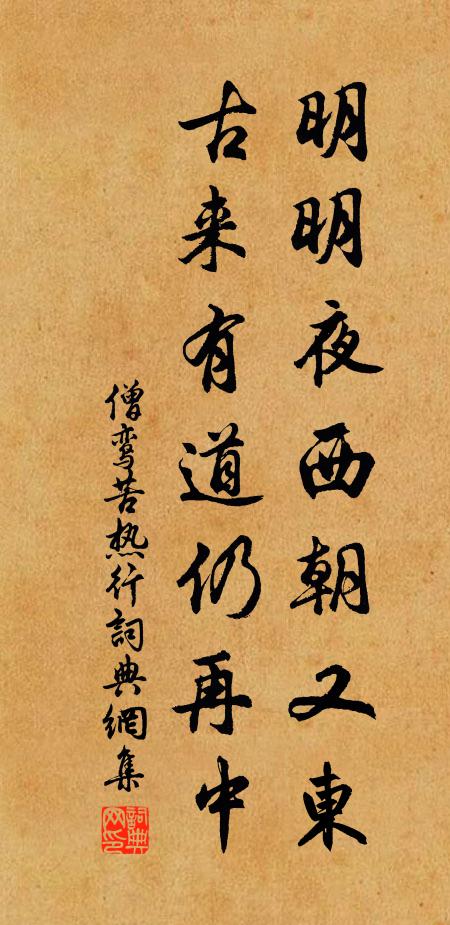 明明夜西朝又東
古来有道仍再中
僧鸾苦热行詞典網集
詞典网印